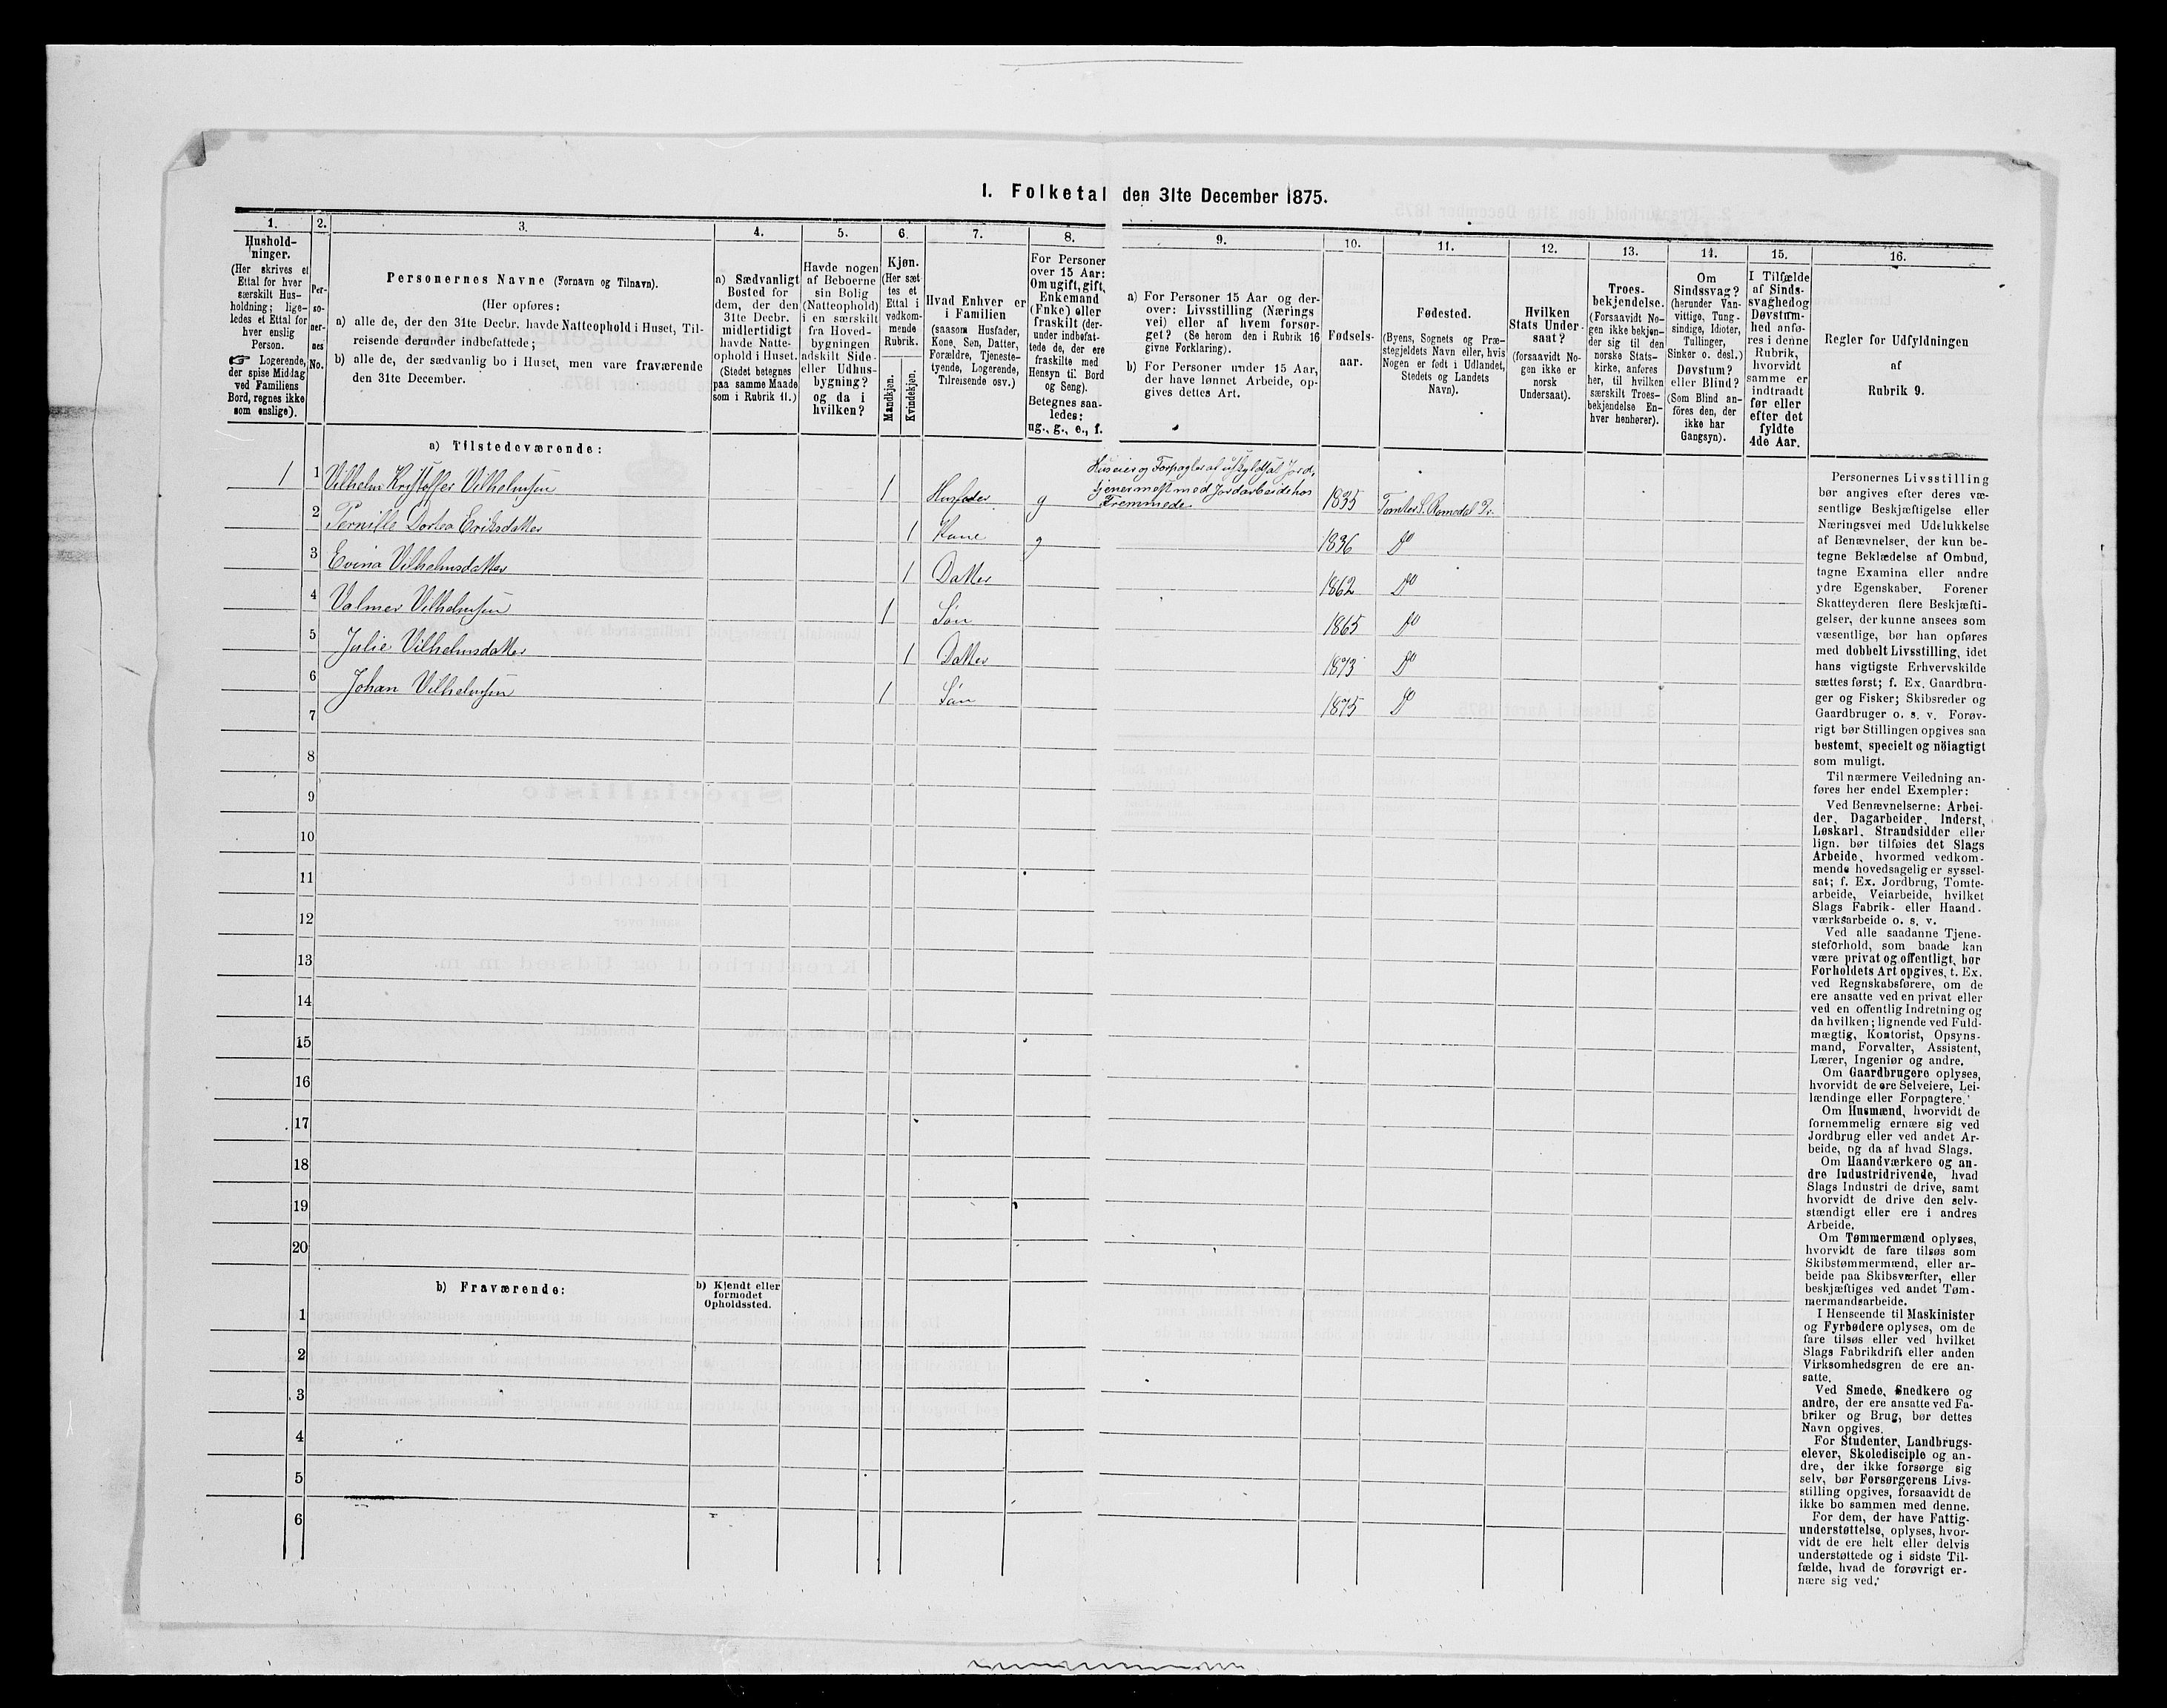 I. Folketal den 31te December 1875.
1. 2. 3. 4. 5. 6. 7. 8. 9. 10. 11. 12. 13. 14. 15. 16.
Hushold-
ninger.
(Her skrives et
Ettal for hver
særskilt Hus-
holdning; lige-
ledes et Ettal for
hver enslig
Person.
☞ Logerende,
der spise Middag
ved Familiens
Bord, regnes ikke
som enslige).
Per-
so-
ner-
nes
No.
Personernes Navne (Fornavn og Tilnavn).
(Her opføres:
a) alle de, der den 31te Decbr. havde Natteophold i Huset, Til-
reisende derunder indbefattede;
b) alle de, der sædvanlig bo i Huset, men vare fraværende
den 31te December.
a) Sædvanligt
Bosted for
dem, der den
31te Decbr.
midlertidigt
havde Natte-
ophold i Huset.
(Stedet betegnes
paa samme Maade
som i Rubrik 11.)
Havde nogen
af Beboerne
sin Bolig
(Natteophold)
i en særskilt
fra Hoved-
bygningen
adskilt Side-
eller Udhus-
bygning?
og da i
hvilken?
Kjøn.
(Her sæt
tes et
Ettal i
vedkom-
mende
Rubrik.
Mandkjøn.
Kvindekjøn.
Hvad Enhver er
i Familien
(saasom Husfader,
Kone, Søn, Datter,
Forældre, Tjeneste-
tyende, Logerende,
Tilreisende osv.)
For Personer
over 15 Aar:
Om ugift, gift,
Enkemand
(Enke) eller
fraskilt (der-
under indbefat-
tede de, der ere
fraskilte med
Hensyn til Bord
og Seng).
Betegnes saa-
ledes:
ug., g., e., f.
a) For Personer 15 Aar og der-
over: Livsstilling (Nærings
vei) eller af hvem forsør-
get? (Se herom den i Rubrik 16
givne Forklaring).
b) For Personer under 15 Aar,
der have lønnet Arbeide, op-
gives dettes Art.
Fødsels-
aar.
Fødested.
(Byens, Sognets og Præ-
stegjeldets Navn eller, hvis
Nogen er født i Udlandet,
Stedets og Landets
Navn).
Hvilken
Stats Under-
saat?
(forsaavidt No-
gen ikke er
norsk
Undersaat).
Troes-
bekjendelse.
(Forsaavidt No-
gen ikke bekjen-
der sig til den
norske Stats-
kirke, anføres
her, til hvilken
særskilt Troes-
bekjendelse En-
hver henhører).
Om
Sindssvag?
(herunder Van-
vittige, Tung-
sindige, Idioter,
Tullinger,
Sinker o. desl.)
Døvstum?
eller Blind?
(Som Blind an-
føres den, der
ikke har
Gangsyn).
I Tilfælde
af Sinds-
svaghed og
Døvstum-
hed anfø-
res i denne
Rubrik,
hvorvidt
samme er
indtraadt
før eller
efter det
fyldte
4de Aar.
Regler for Udfyldningen
af
Rubrik 9.
a) Tilstedeværende:
Huseier og Forpagter af uskyldsat Jord,
tjener mest med Jordarbeide hos
Fremmede
1 1 Vilhelm Kristoffer Vilhelmsen 1 Husfader g 1835 Tomter S. Romedal Pr.
2 Pernille Dortea Eriksdatter 1 Kone g 1836 Do
3 Evina Vilhelmsdatter 1 Datter 1862 Do
4 Valmer Vilhelmsen 1 Søn 1865 Do
5 Julie Vilhelmsdatter 1 Datter 1873 Do
6 Johan Vilhelmsen 1 Søn 1875 Do
7
8
9
10
11
12
13
14
15
16
17
18
19
20
b) Fraværende:
b) Kjendt eller
formodet
Opholdssted.
1
2
3
4
5
6
Personernes Livsstilling
bør angives efter deres væ-
sentlige Beskjæftigelse eller
Næringsvei med Udelukkelse
af Benævnelser, der kun be-
tegne Beklædelse af Ombud,
tagne Examina eller andre
ydre Egenskaber. Forener
Skatteyderen flere Beskjæfti-
gelser, der kunne ansees som
væsentlige, bør han opføres
med dobbelt Livsstilling, idet
hans vigtigste Erhvervskilde
sættes først; f. Ex. Gaardbru-
ger og Fisker; Skibsreder og
Gaardbruger o. s. v. Forøv-
rigt bør Stillingen opgives saa
bestemt, specielt og nöiagtigt
som muligt.
Til nærmere Veiledning an-
føres her endel Exempler:
Ved Benævnelserne: Arbei-
der, Dagarbeider, Inderst,
Løskarl, Strandsidder eller
lign. bør tilføies det Slags
Arbeide, hvormed vedkom-
mende hovedsagelig er syssel-
sat; f. Ex. Jordbrug, Tomte-
arbeide, Veiarbeide, hvilket
Slags Fabrik- eller Haand-
værksarbeide o. s. v.
Ved alle saadanne Tjene-
steforhold, som baade kan
være privat og offentligt, bør
Forholdets Art opgives, t. Ex.
ved Regnskabsførere, om de
ere ansatte ved en privat eller
ved en offentlig Indretning og
da hvilken; lignende ved Fuld-
mægtig, Kontorist, Opsyns-
mand, Forvalter, Assistent,
Lærer, Ingeniør og andre.
Om Gaardbrugere oplyses,
hvorvidt de ere Selveiere, Lei-
lændinge eller Forpagtere.
Om Husmænd, hvorvidt de
fornemmelig ernære sig ved
Jordbrug eller ved andet Ar-
beide, og da af hvad Slags.
Om Haandværkere og an-
dre Industridrivende, hvad
Slags Industri de drive, samt
hvorvidt de drive den selv-
stændigt eller ere i andres
Arbeide.
Om Tømmermænd oplyses,
hvorvidt de fare tilsøs som
Skibstømmermænd, eller ar-
beide paa Skibsværfter, eller
beskjæftiges ved andet Tøm-
mermandsarbeide.
I Henseende til Maskinister
og Fyrbødere oplyses, om de
fare tilsøs eller ved hvilket
Slags Fabrikdrift eller anden
Virksomhedsgren de ere an-
satte.
Ved Smede, Snedkere og
andre, der ere ansatte ved Fa-
briker og Brug, bør dettes
Navn opgives.
For Studenter, Landbrugs-
elever, Skoledisciple og an-
dre, der ikke forsørge sig
selv, bør Forsørgerens Livs-
stilling opgives, forsaavidt de
ikke bo sammen med denne.
For dem, der have Fattig-
understøttelse, oplyses, hvor-
vidt de ere helt eller delvis
understøttede og i sidste Til-
fælde, hvad de forøvrigt er-
nære sig ved.